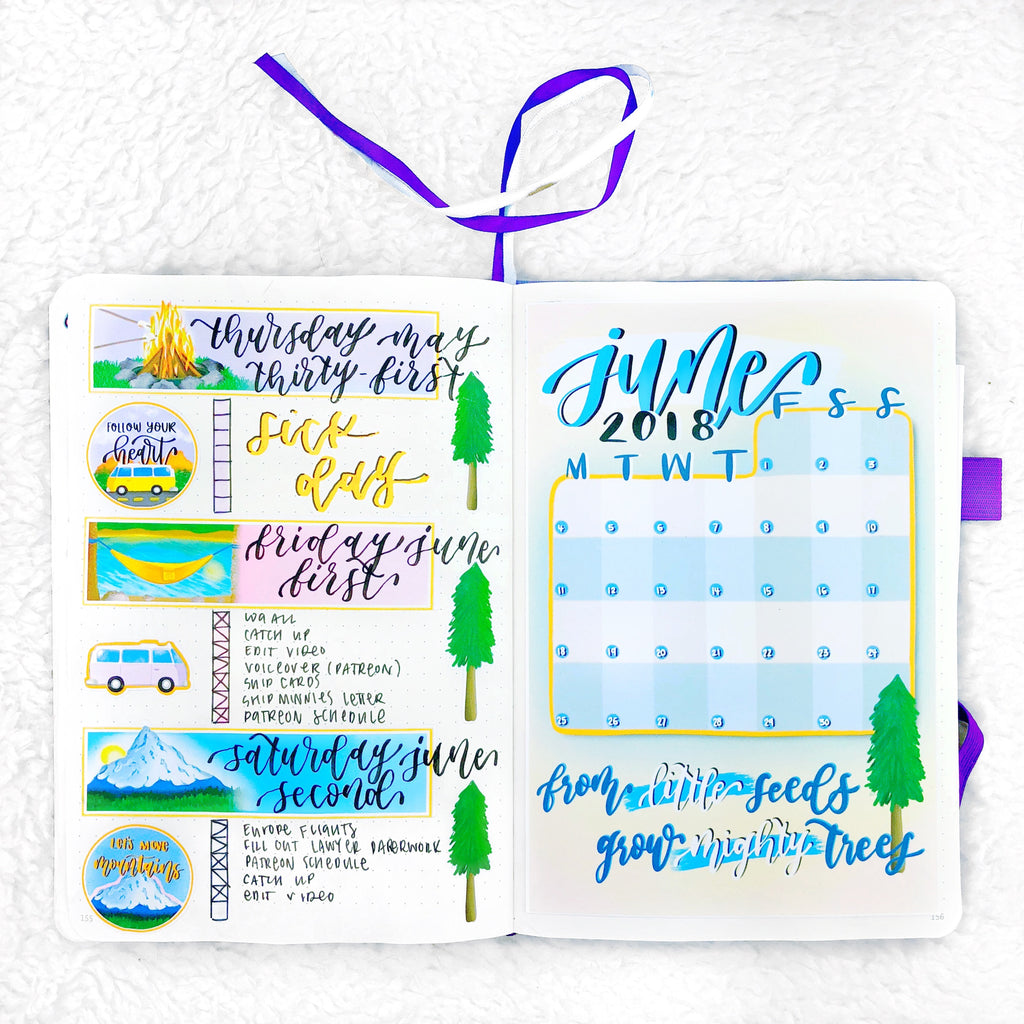 thursday may
thirty-first
FOLLOW YOUR
heart
sick
day
friday june
first
WQ ALL
CATCH UP
EDIT VIDEO
VOICEOVER (PATREON)
SHIP CARDS
SHIP MINNIES LETTER
PATREON SCHEDULE
saturday june
second
LET'S MOVE
mountains
EUROPE FLIGHTS
FILL OUT LAWYER PAPERWORK
PATREON SCHEDULE
CATCH UP
EDIT VIDEO
155
june
2018
F S S
M T W T
1 2 3
4 5 6 7 8 9 10
11 12 13 14 15 16 17
18 19 20 21 22 23 24
25 26 27 28 29 30
from little seeds
grow mighty trees
156